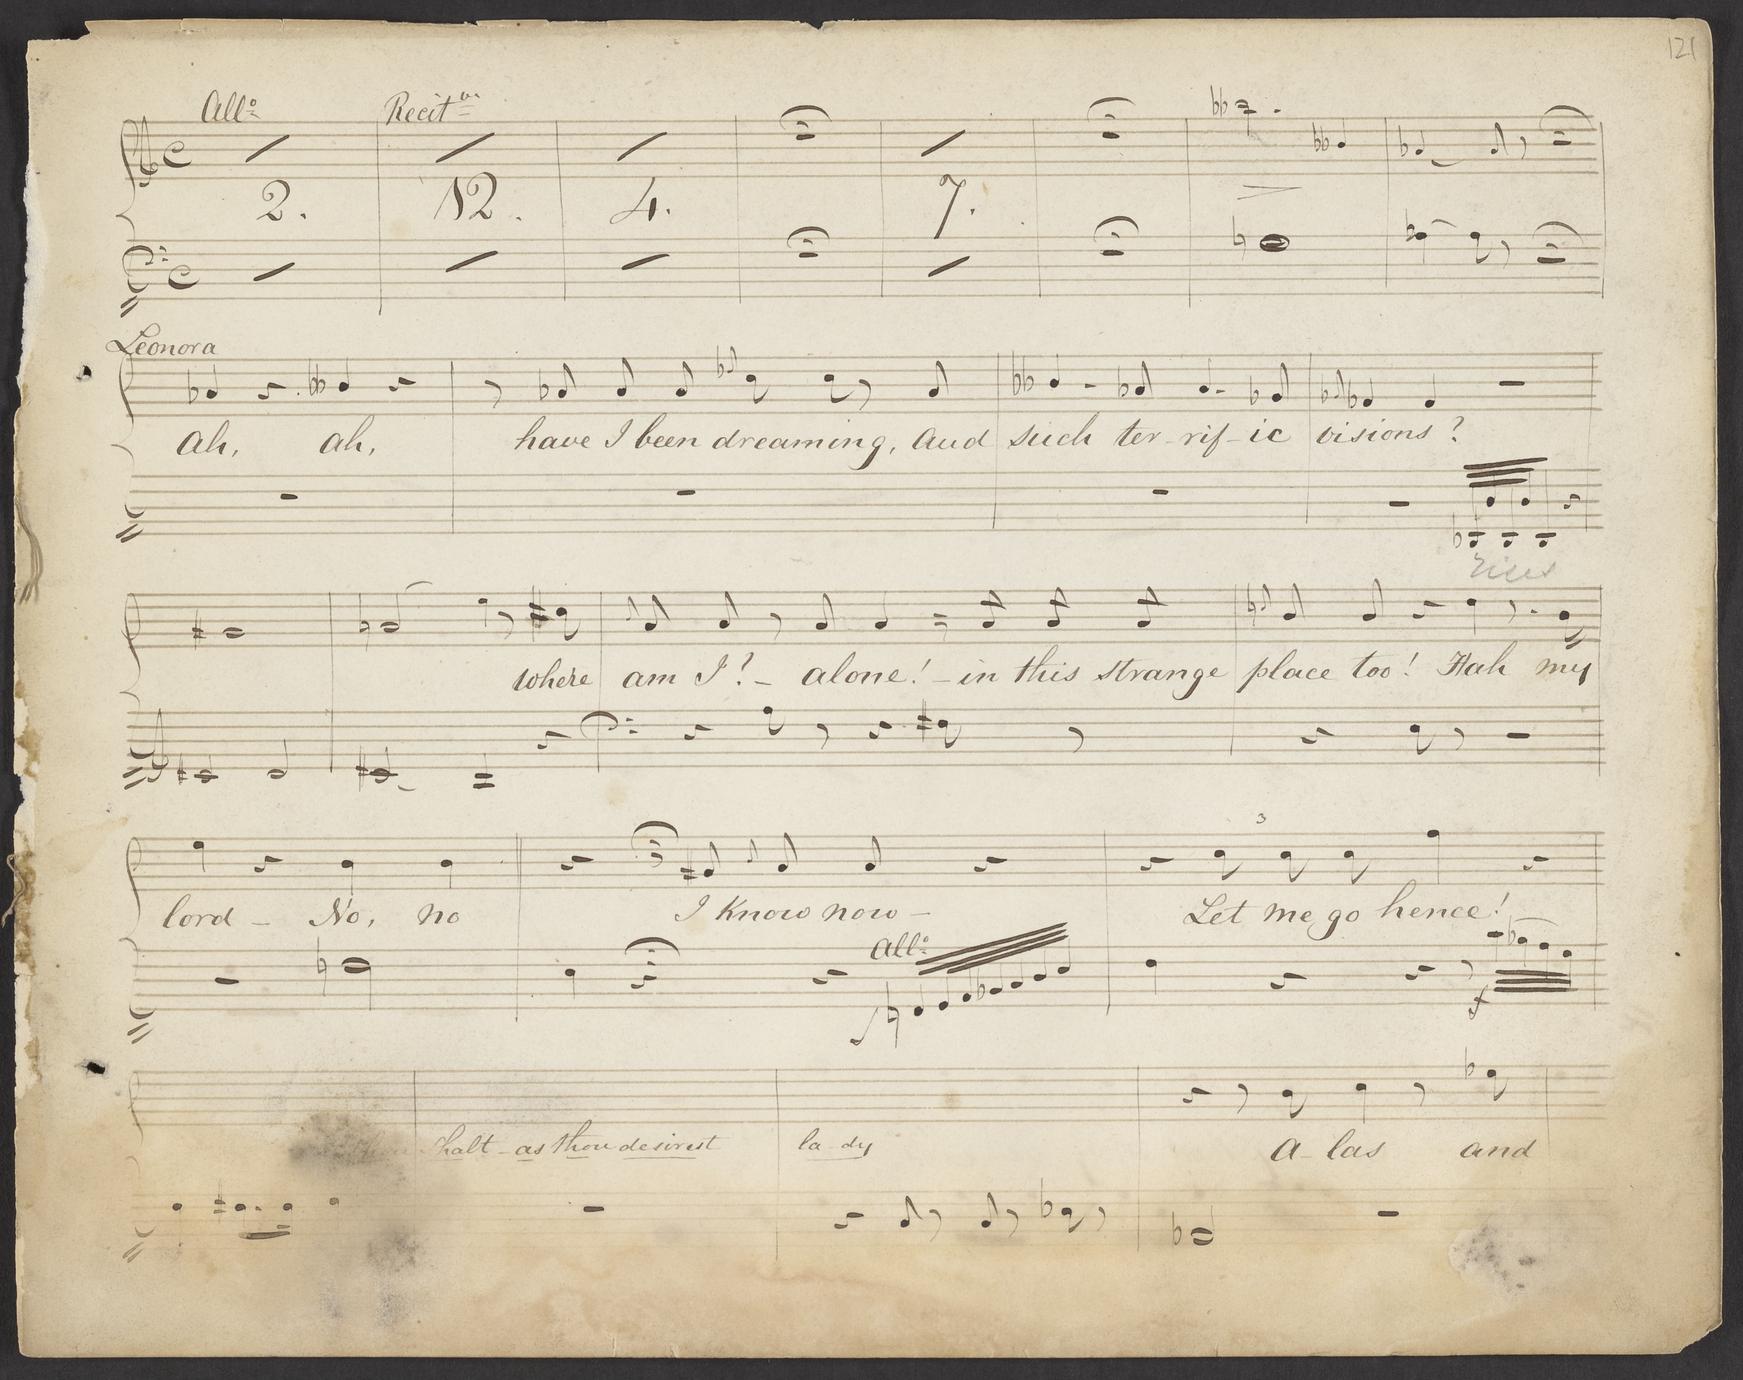 121
Allo Recitve
2. 12. 4. 7.
Leonora
Ah, ah, have I been dreaming, and such ter-rif-ic visions?
where am I? - alone! - in this strange place too! Hah my
lord - No, no I know now - Let me go hence!
3
Allo
f
halt - as thou desirest la-dy A-las and